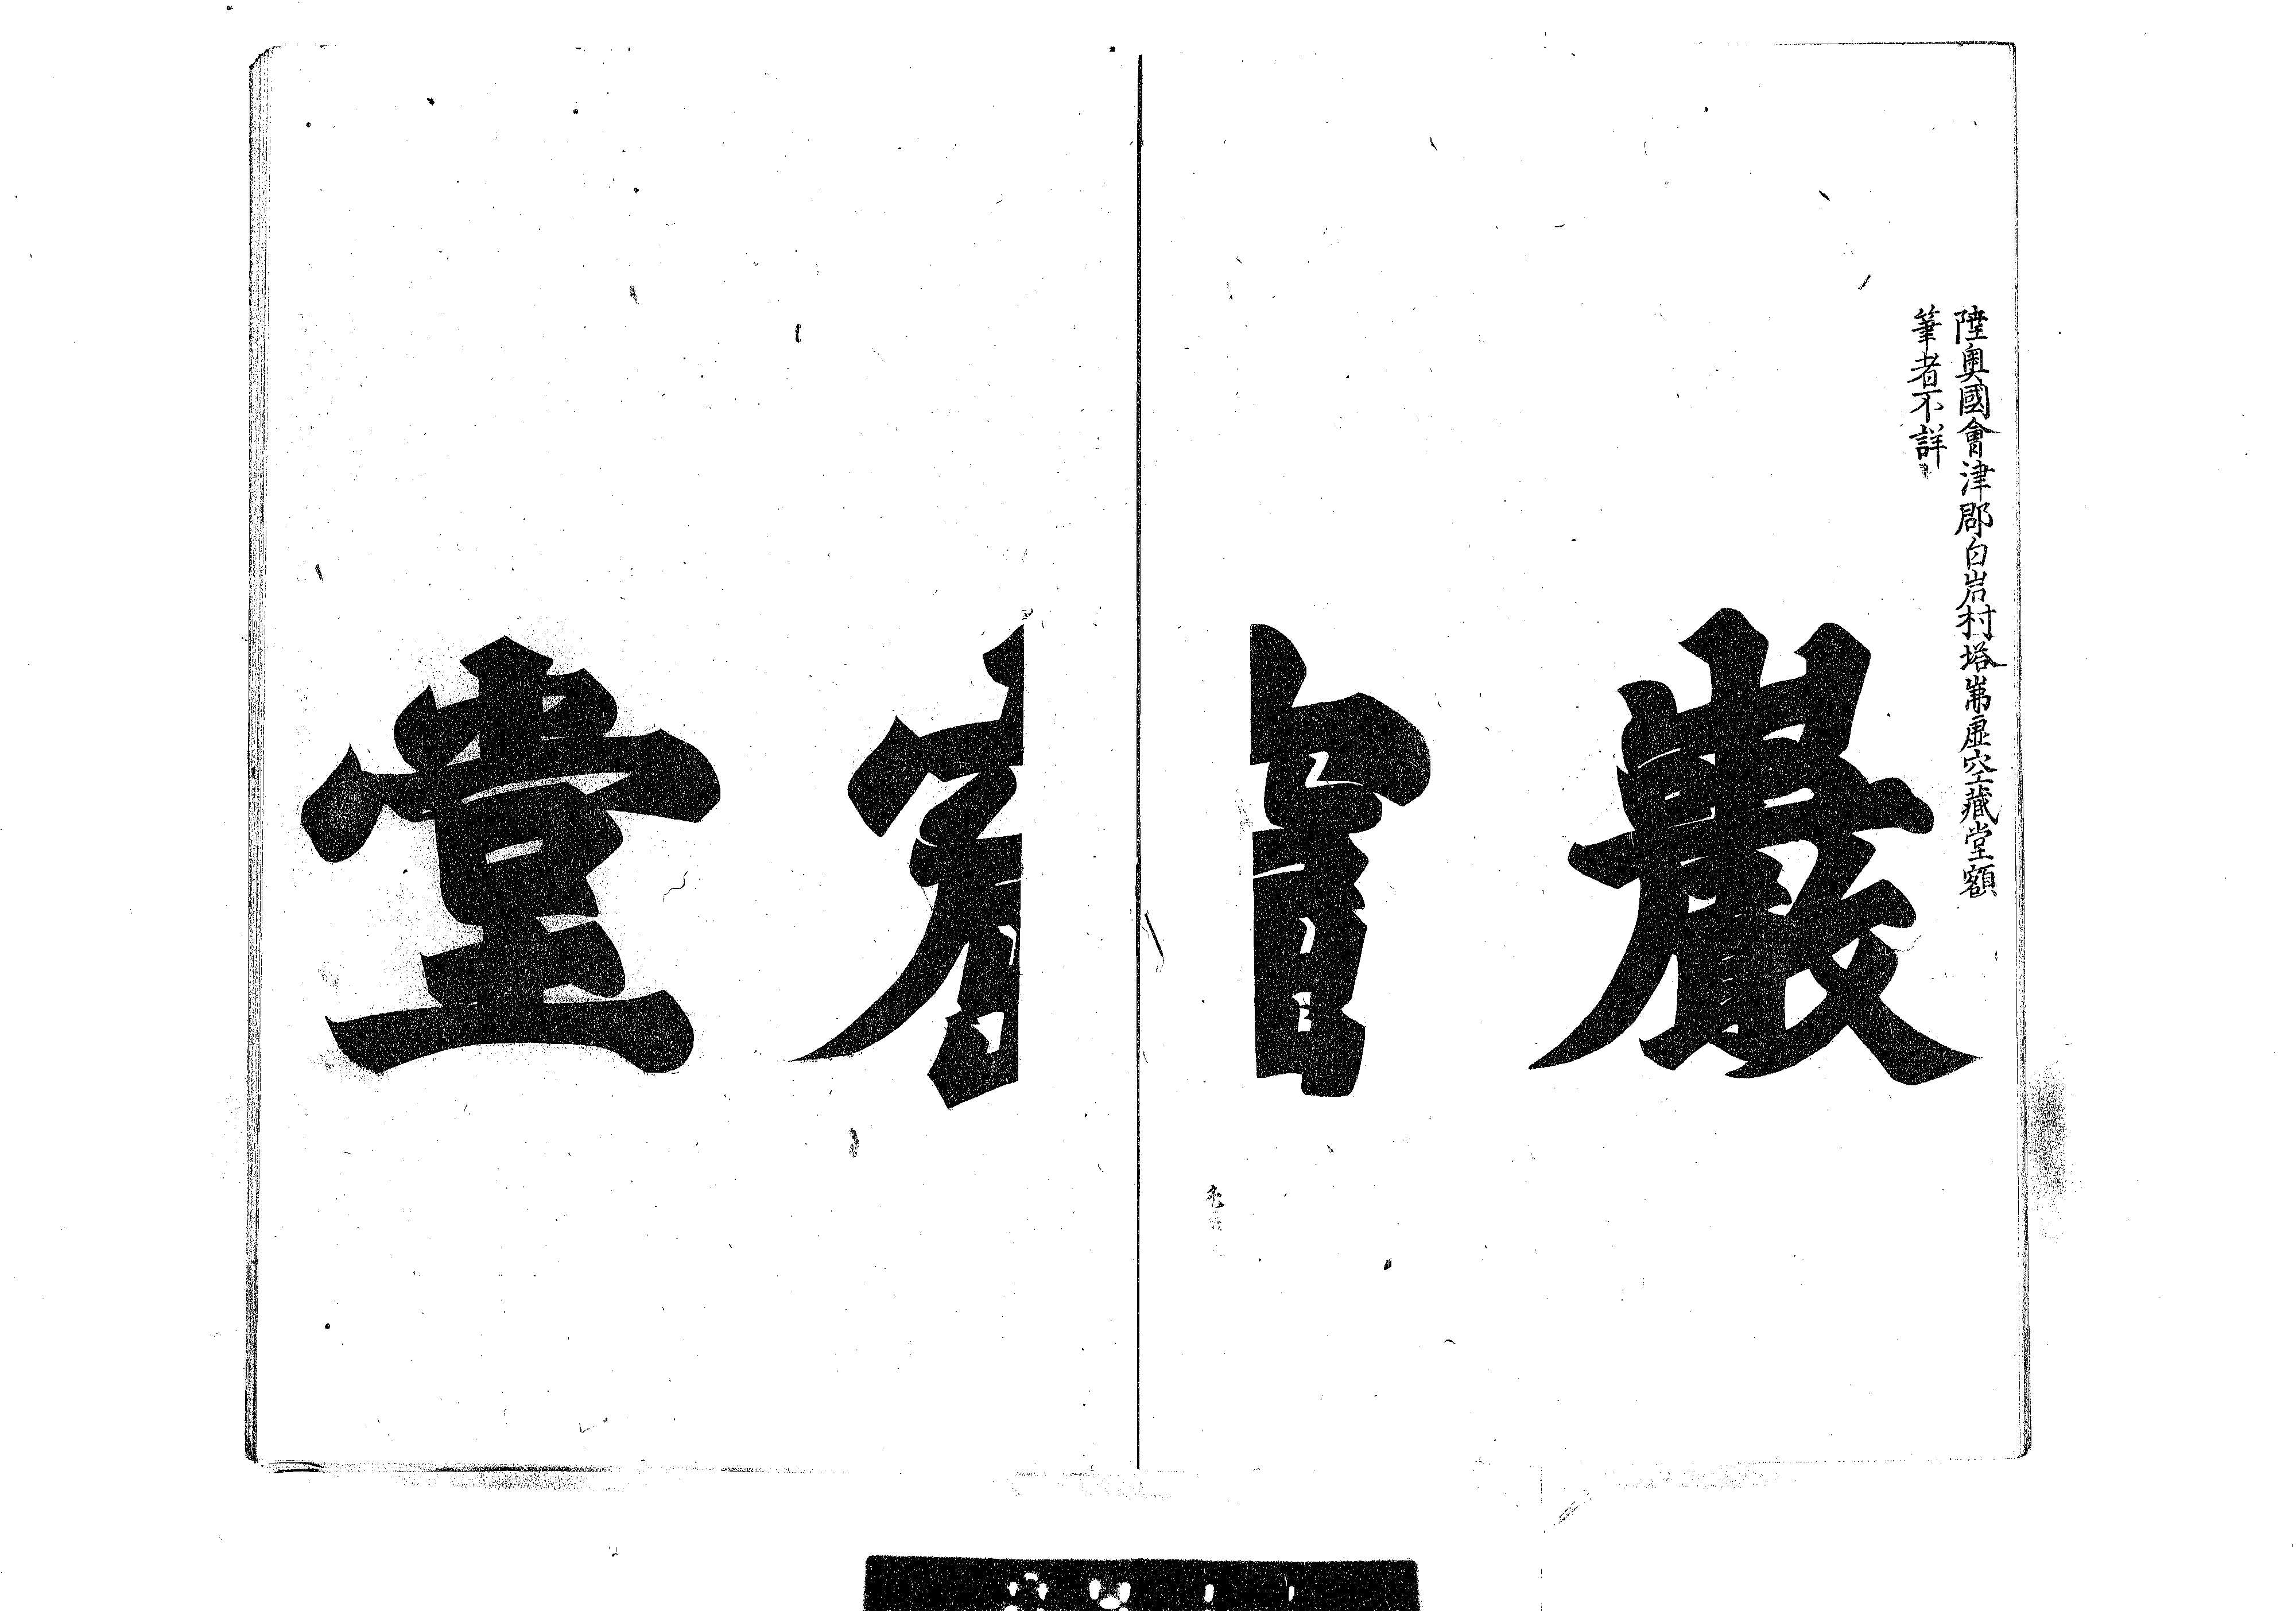 陸奥國會津郡白岩村塔岪虚空藏堂額
筆者不詳
巖堂